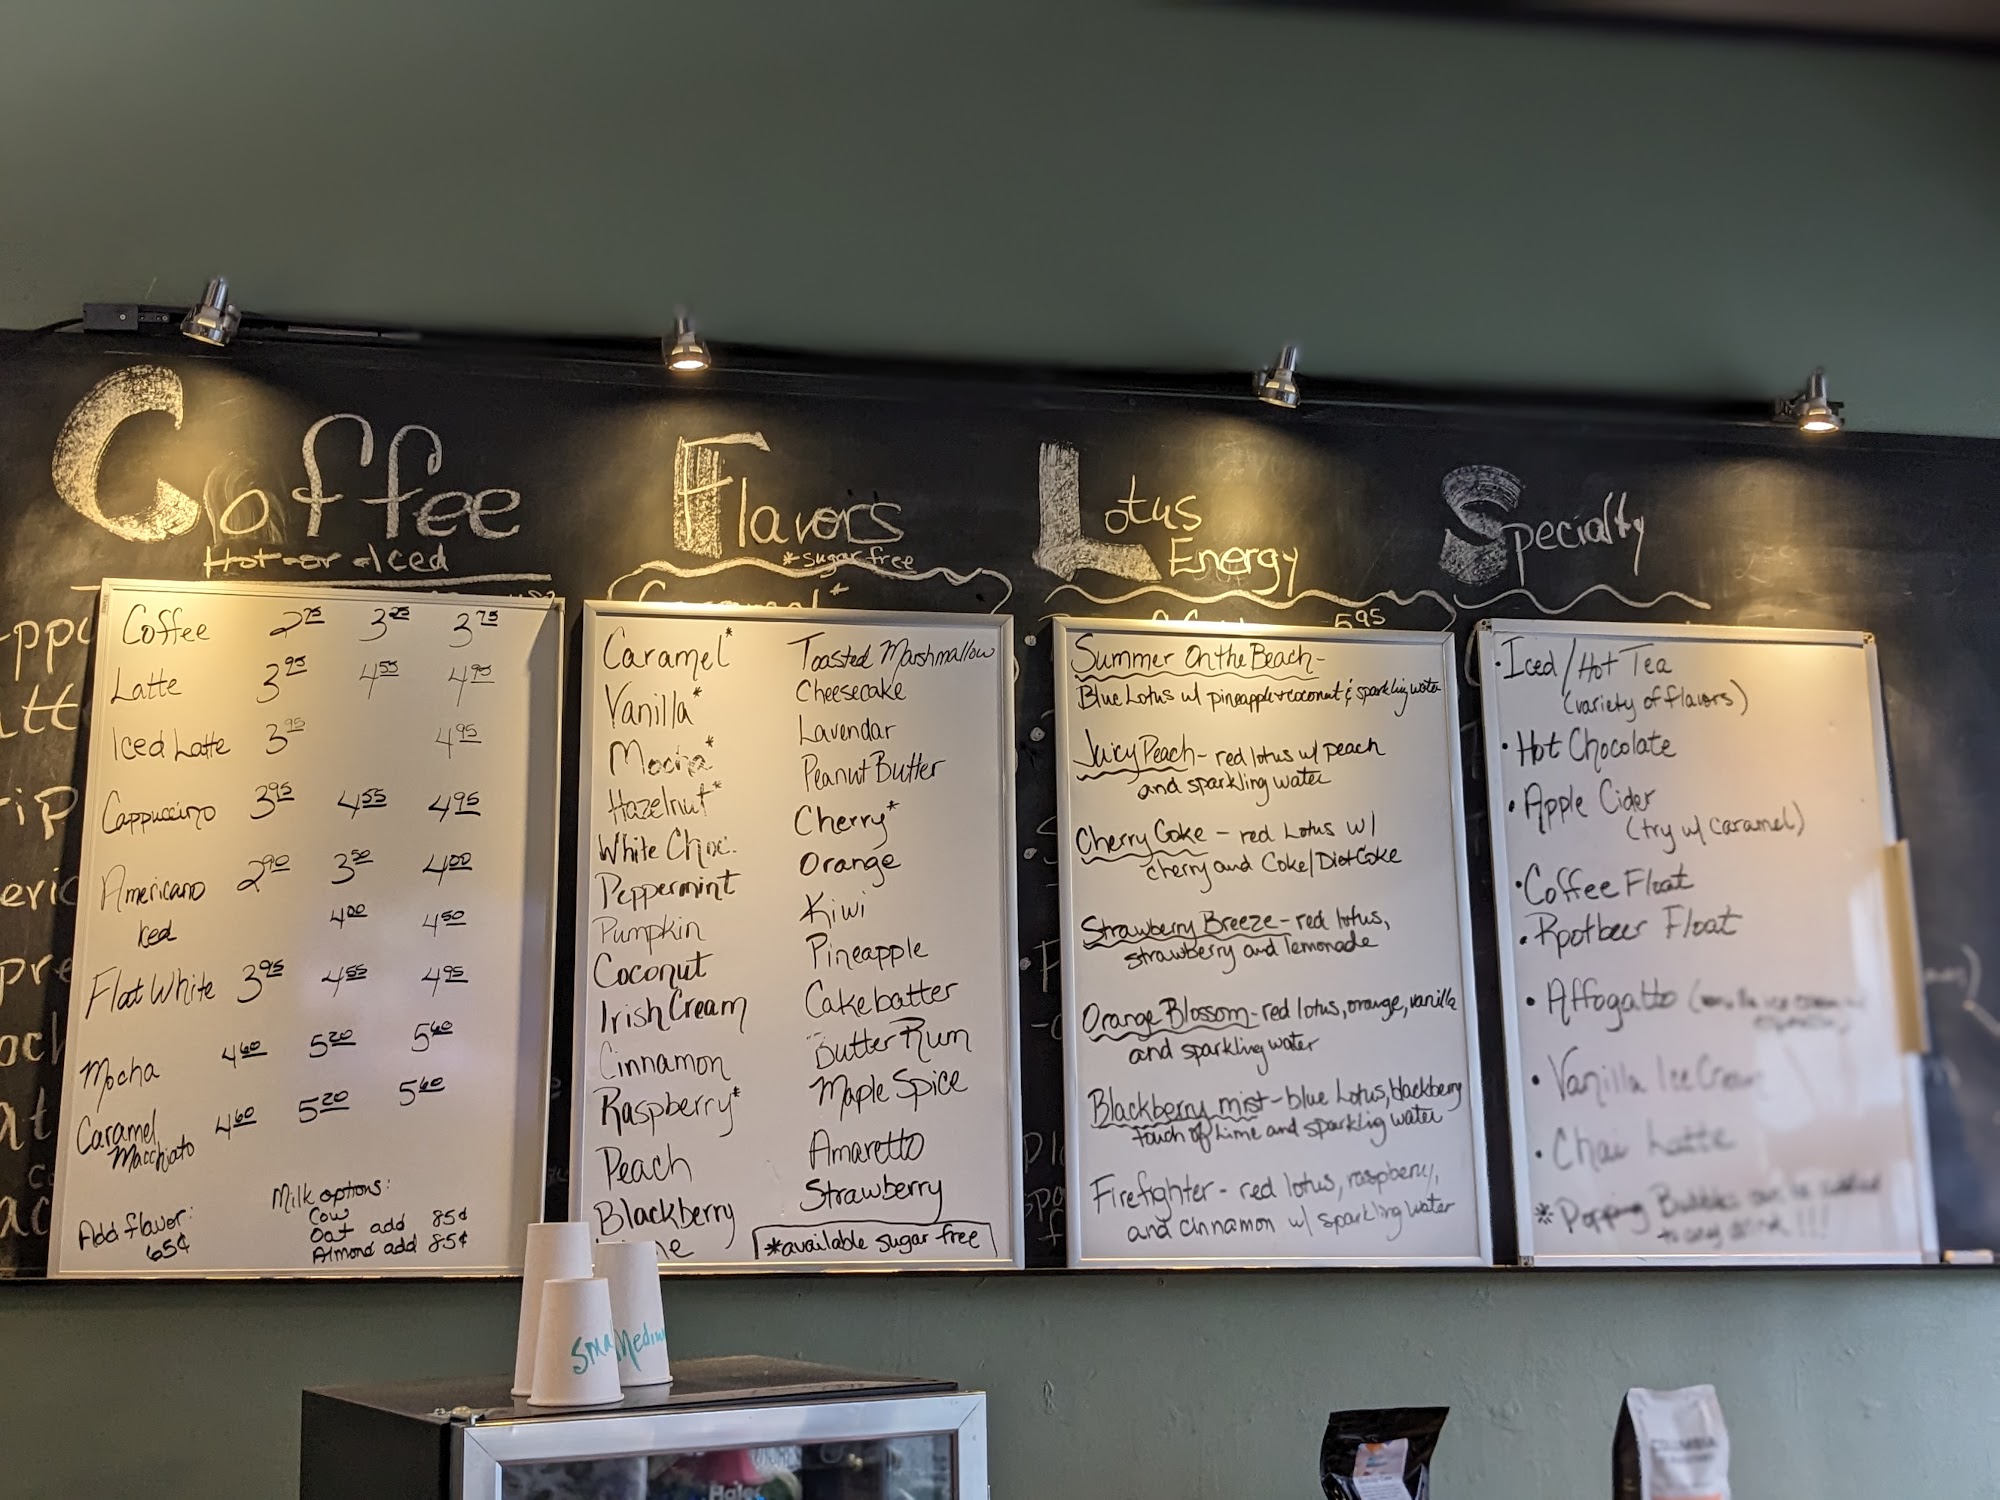 Coffee
Hot or Iced
Coffee 2.75 3.25 3.75
Latte 3.95 4.55 4.95
Iced Latte 3.95 4.95
Cappuccino 3.95 4.55 4.95
Americano 2.90 3.50 4.00
Iced 4.00 4.50
Flat White 3.95 4.55 4.95
Mocha 4.60 5.20 5.60
Caramel
Macchiato 4.60 5.20 5.60
Add flavor:
65¢
Milk options:
Cow
Oat add 85¢
Almond add 85¢
Flavors
*sugar free
Caramel*
Vanilla*
Mocha*
Hazelnut*
White Choc.
Peppermint
Pumpkin
Coconut
Irish Cream
Cinnamon
Raspberry*
Peach
Blackberry
Toasted Marshmallow
Cheesecake
Lavendar
Peanut Butter
Cherry*
Orange
Kiwi
Pineapple
Cakebatter
Butter Rum
Maple Spice
Amaretto
Strawberry
*available sugar free
Lotus
Energy
5.95
Summer On the Beach-
Blue Lotus w/ pineapple + coconut & sparkling water
Juicy Peach - red lotus w/ peach
and sparkling water
Cherry Coke - red Lotus w/
cherry and Coke/Diet Coke
Strawberry Breeze - red lotus,
strawberry and lemonade
Orange Blossom - red lotus, orange, vanilla
and sparkling water
Blackberry mist - blue Lotus, blackberry
touch of Lime and sparkling water
Firefighter - red lotus, raspberry,
and cinnamon w/ sparkling water
Specialty
• Iced/Hot Tea
(variety of flavors)
• Hot Chocolate
• Apple Cider
(try w/ caramel)
• Coffee Float
• Rootbeer Float
• Affogatto
• Vanilla Ice Cream
• Chai Latte
* Popping Bubbles can be added
to any drink!!!
Small
Medium
Haier